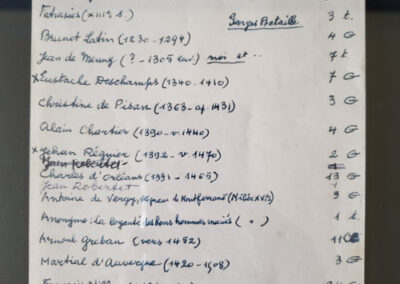 Fatrasies (XIIIe s.) 3 t.
Georges Bataille
Brunet Latin (1230-1294) 4 G
Jean de Meung (? - 1305 env.) moi et .. 7 t.
x Eustache Deschamps (1340-1410) 7 G
Christine de Pisan (1363-ap. 1431) 3 G
Alain Chartier (1390-v. 1440) 4 G
x Jehan Régnier (1392-v. 1470) 2 G
Jean Robertet
Charles d'Orléans (1391-1465) 13 G
Jean Robertet
Antoine de Vergy, seigneur de Montferrand (Milieu XVe) 3 G
Anonyme : La loyauté des hommes (") 1 t.
Arnoul Greban (vers 1452) 11 G
Martial d'Auvergne (1420-1508) 3 G